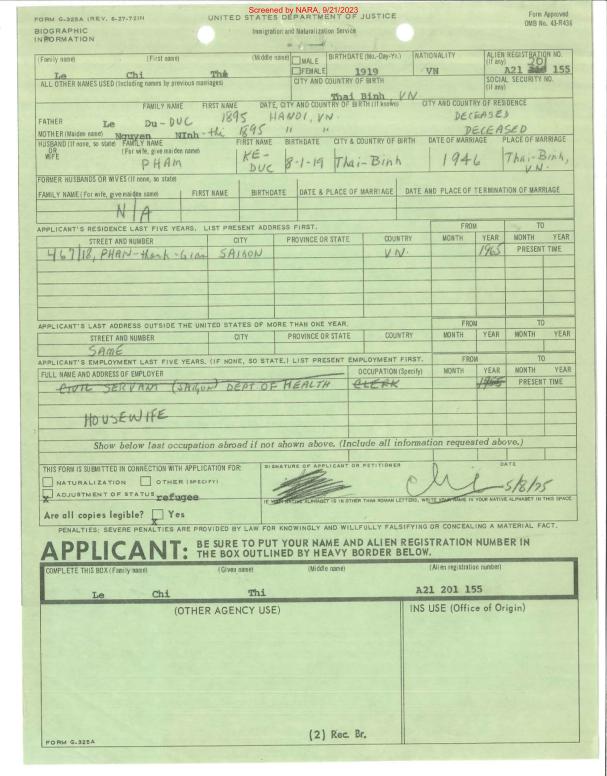 Screened by NARA, 9/21/2023
FORM G-325A (REV. 6-27-72)N
UNITED STATES DEPARTMENT OF JUSTICE
Form Approved
OMB No. 43-R436
BIOGRAPHIC
INFORMATION
Immigration and Naturalization Service
(Family name) (First name) (Middle name) MALE FEMALE BIRTHDATE (Mo.-Day-Yr.) NATIONALITY ALIEN REGISTRATION NO. (If any)
Le Chi Thi 1919 VN A21 201 155
ALL OTHER NAMES USED (Including names by previous marriages) CITY AND COUNTRY OF BIRTH SOCIAL SECURITY NO. (If any)
Thai Binh, VN
FAMILY NAME FIRST NAME DATE, CITY AND COUNTRY OF BIRTH (If known) CITY AND COUNTRY OF RESIDENCE
FATHER Le Du-DUC 1895 HANOI, VN. DECEASED
MOTHER (Maiden name) Nguyen NInh-thi 1895 " " DECEASED
HUSBAND (If none, so state) OR WIFE FAMILY NAME (For wife, give maiden name) FIRST NAME BIRTHDATE CITY & COUNTRY OF BIRTH DATE OF MARRIAGE PLACE OF MARRIAGE
PHAM KE-DUC 8-1-19 Thai-Binh 1946 Thai-Binh, V.N.
FORMER HUSBANDS OR WIVES (If none, so state)
FAMILY NAME (For wife, give maiden name) FIRST NAME BIRTHDATE DATE & PLACE OF MARRIAGE DATE AND PLACE OF TERMINATION OF MARRIAGE
N/A
APPLICANT'S RESIDENCE LAST FIVE YEARS. LIST PRESENT ADDRESS FIRST. FROM TO
STREET AND NUMBER CITY PROVINCE OR STATE COUNTRY MONTH YEAR MONTH YEAR
467/18, PHAN-thanh-Gian SAIGON VN. 1965 PRESENT TIME
APPLICANT'S LAST ADDRESS OUTSIDE THE UNITED STATES OF MORE THAN ONE YEAR. FROM TO
STREET AND NUMBER CITY PROVINCE OR STATE COUNTRY MONTH YEAR MONTH YEAR
SAME
APPLICANT'S EMPLOYMENT LAST FIVE YEARS. (IF NONE, SO STATE.) LIST PRESENT EMPLOYMENT FIRST. FROM TO
FULL NAME AND ADDRESS OF EMPLOYER OCCUPATION (Specify) MONTH YEAR MONTH YEAR
CIVIL SERVANT (SAIGON) DEPT OF HEALTH CLERK 1965 PRESENT TIME
HOUSEWIFE
Show below last occupation abroad if not shown above. (Include all information requested above.)
THIS FORM IS SUBMITTED IN CONNECTION WITH APPLICATION FOR: SIGNATURE OF APPLICANT OR PETITIONER DATE
NATURALIZATION OTHER (SPECIFY)
x ADJUSTMENT OF STATUS refugee
Chi 5/8/75
IF YOUR NATIVE ALPHABET IS IN OTHER THAN ROMAN LETTERS, WRITE YOUR NAME IN YOUR NATIVE ALPHABET IN THIS SPACE
Are all copies legible? x Yes
PENALTIES: SEVERE PENALTIES ARE PROVIDED BY LAW FOR KNOWINGLY AND WILLFULLY FALSIFYING OR CONCEALING A MATERIAL FACT.
APPLICANT: BE SURE TO PUT YOUR NAME AND ALIEN REGISTRATION NUMBER IN
THE BOX OUTLINED BY HEAVY BORDER BELOW.
COMPLETE THIS BOX (Family name) (Given name) (Middle name) (Alien registration number)
Le Chi Thi A21 201 155
(OTHER AGENCY USE) INS USE (Office of Origin)
(2) Rec. Br.
FORM G-325A